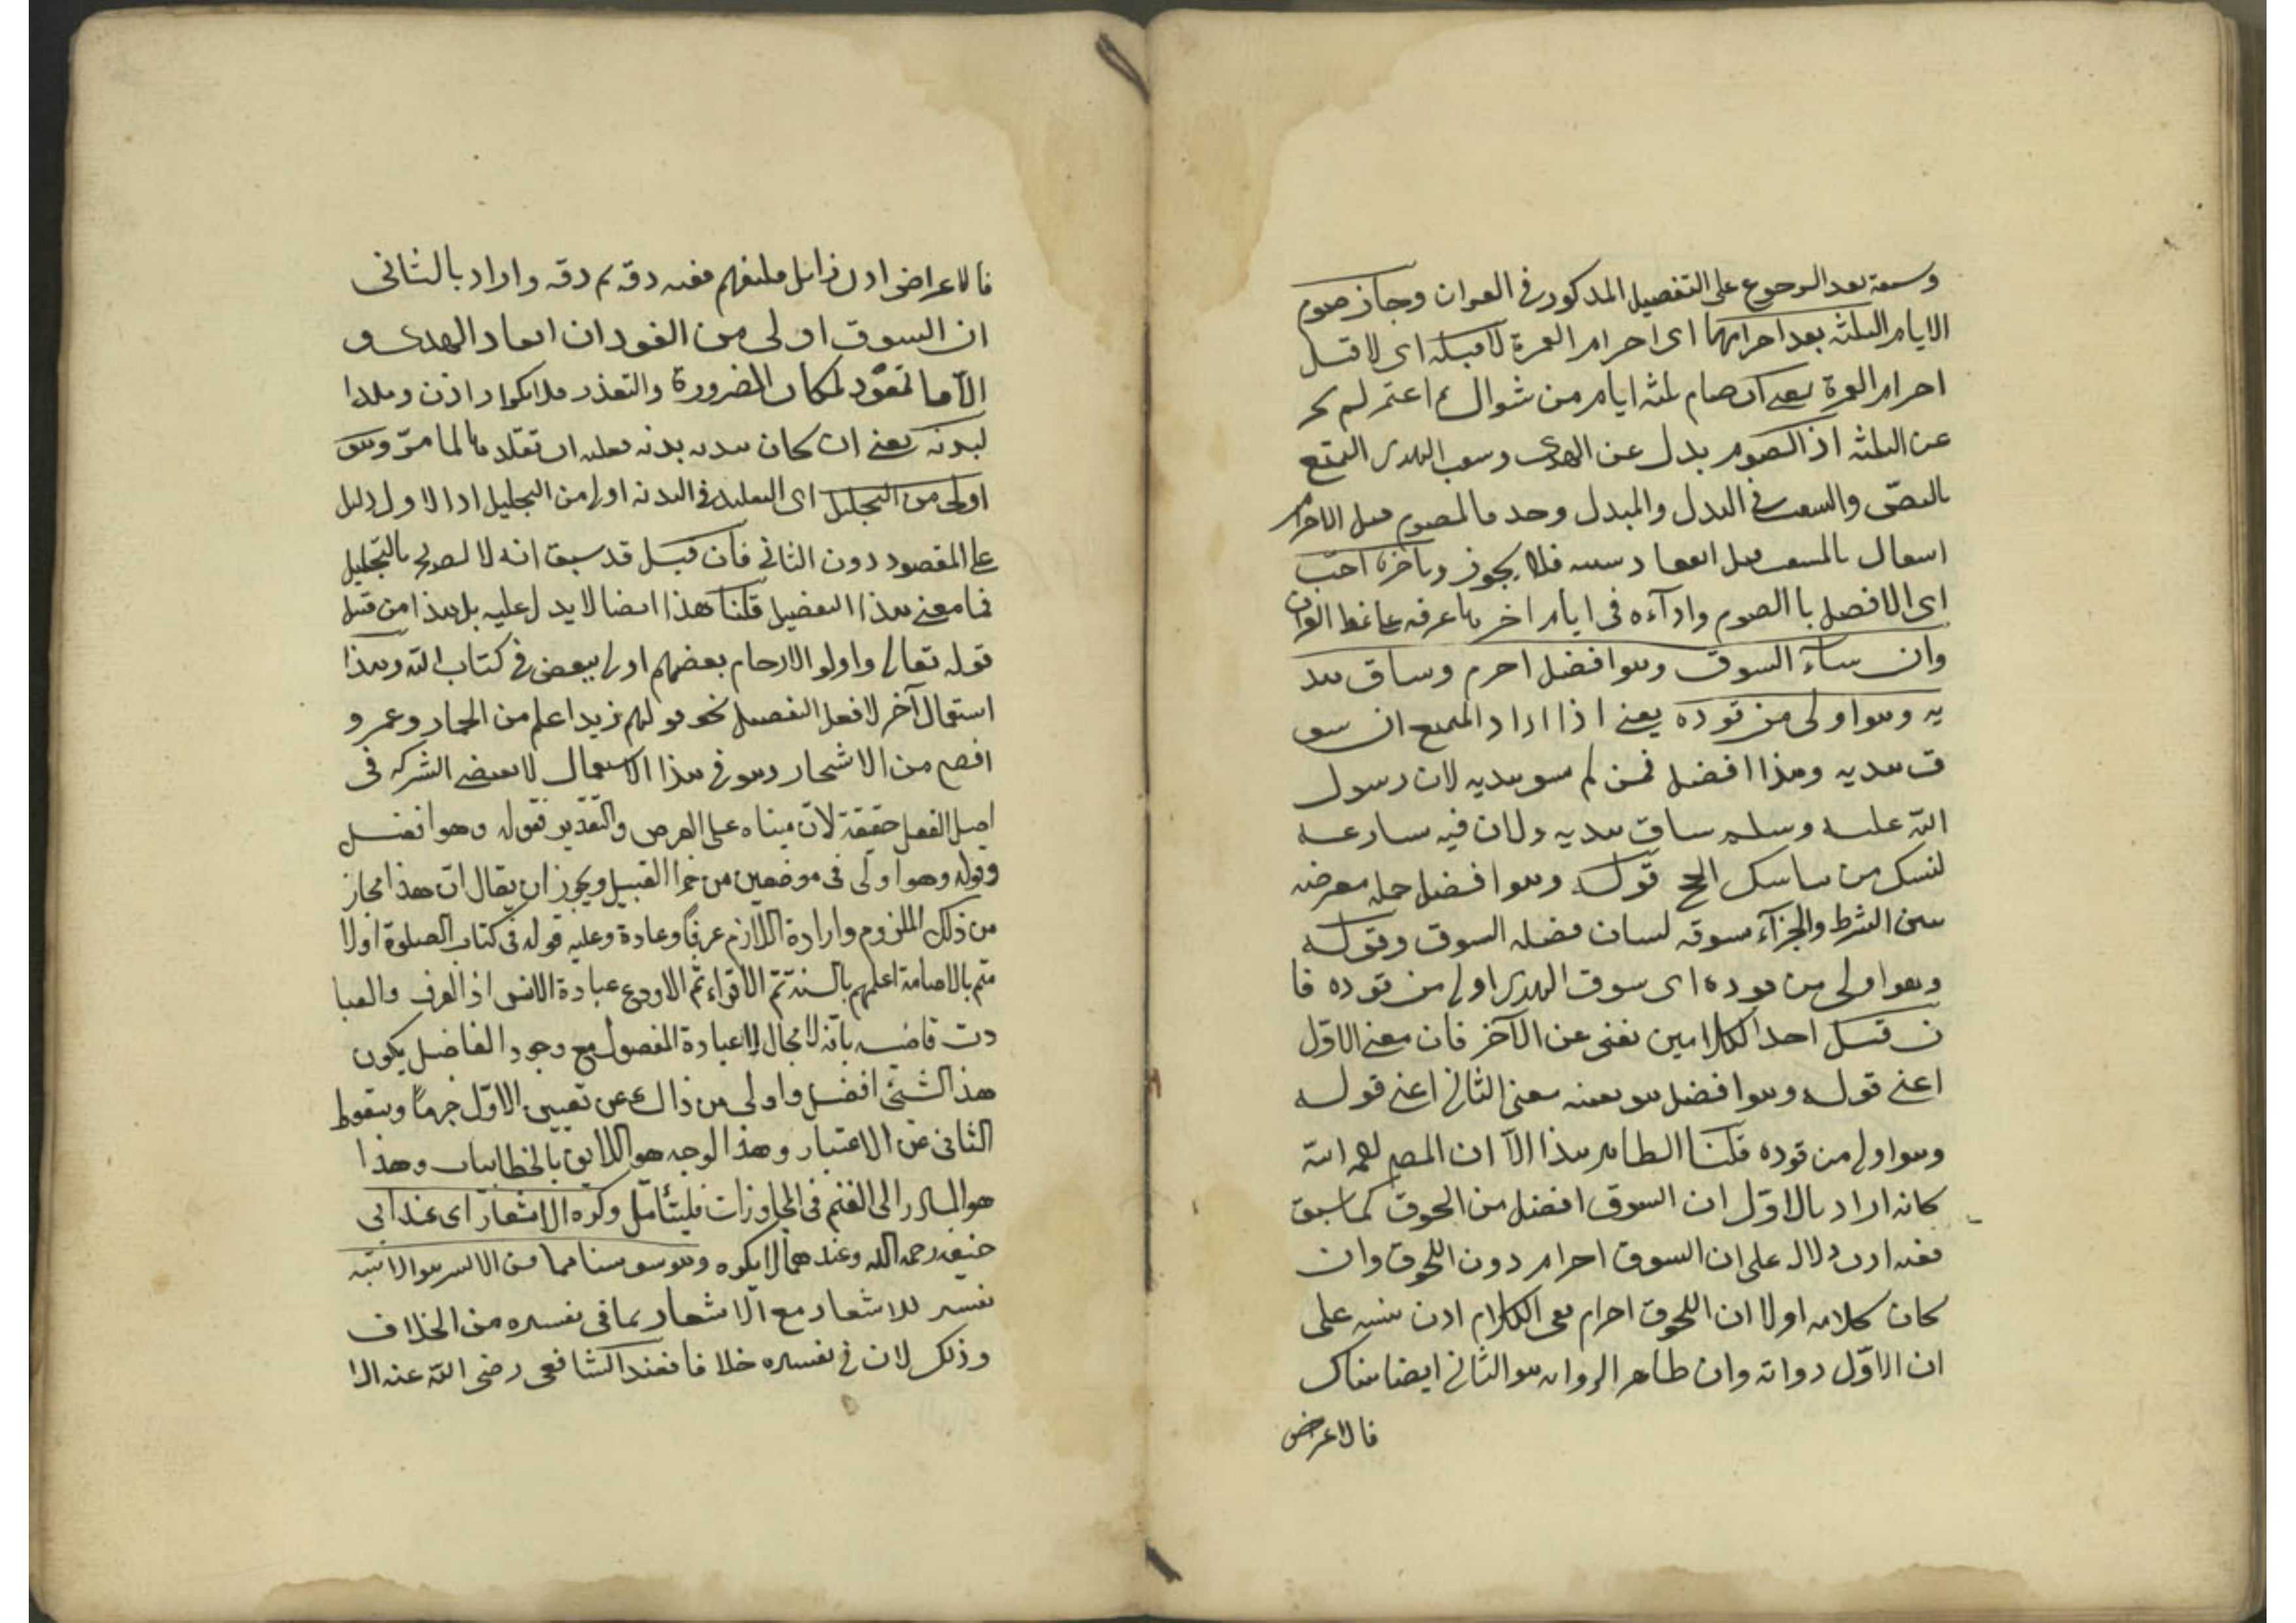 وسبعة بعد الرجوع على التفصيل المذكور في القران وجاز صوم
الايام الثلثة بعد احرامها اى احرام العمرة لا قبله اى لا قبل
احرام العمرة يعنى ان صام ثلثة ايام من شوال ثم اعتمر لم يجز
عن الثلثة اذ الصوم بدل عن الهدى وسبب الهدى التمتع
بالنص والسبب في البدل والمبدل وحد فالصوم قبل الاحرام
بالسبب قبل فلا يجوز وتاخره احب
اى الافضل باالصوم واداءه فى ايام اخر على نمط القران
وان شاء السوق وهو افضل احرم وساق هد
يه وهو اولى من قوده يعنى اذا اراد المتمتع ان يسو
ق هديه وهذا افضل فمن لم يسق هديه لان رسول
الله عليه وسلم ساق هديه ولان فيه سارعة
لنسك من مناسك الحج قوله وهو افضل جملة معترضه
بين الشرط والجزآء مسوقه لبيان فضله السوق وقوله
وهو اولى من قوده اى سوق الهدى اولى من قوده فا
ن قيل احد الكلامين يغنى عن الآخر فان معنى الاول
اعنى قوله وهو افضل هو بعينه معنى الثانى اعنى قوله
وهو اولى من قوده قلنا الظاهر هذا الا ان المص رحمه الله
كانه اراد بالاول ان السوق افضل من اللحوق كما سبق
ففيه اذن دلالة على ان السوق احرام دون اللحوق وان
كان كلامه اولا ان اللحوق احرام ففى الكلام اذن تنبيه على
ان الاول رواية وان ظاهر الروايه هو الثانى ايضا هناك
فالاعرض
فالاعراض اذن زائل فليفهم ففيه دقة ثم دقة واراد بالثانى
ان السوق اولى من القود ان انقاد الهدى و
الا فالتقود لمكان الضرورة والتعذر فلا يكون اذن وقلد
لبدنه يعنى ان كان هديه بدنه فعليه ان تقلد بها لما مر وهو
اولى من التجليل اى التقليد فى البدنه اولى من التجليل اذ الاول دليل
على المقصود دون الثانى فان قيل قد سبق انه لا بالتجليل
فما معنى هذا التفضيل قلنا هذا ايضا لا يدل عليه بل هذا من قبيل
قوله تعالى واولو الارحام بعضهم اولى ببعض فى كتاب الله وهذا
استعمال آخر لافعل التفضيل نحو قولهم زيد اعلم من الحمار وعمرو
افصح من الاشجار وهو فى هذا الاستعمال لا يقتضى الشركه فى
اصل الفعل حقيقة لان مبناه على الفرض والتقدير فقوله وهو افضل
وقوله وهو اولى فى موضعين من هذا القبيل ويجوز ان يقال ان هذا مجاز
من ذلك الملزوم وارادة اللازم عرفا وعادة وعليه قوله فى كتاب الصلوة اولا
هم بالامامة اعلمهم بالسنة ثم الاقراء ثم الاورع عبادة الاسن اذ العرف والعبا
دت قاضية بانه لا مجال لاعبادة المفضول مع وجود الفاضل يكون
هذا الشئ افضل واولى من ذاك عن تعيين الاول جزما وسقوط
الثانى عن الاعتبار وهذا الوجه هو اللايق بالخطابيات وهذا
هو المبادر الى الفهم فى المحاورات فليتأمل وكره الاشعار اى عند ابى
حنيفه رحمه الله وعندهما لا يكره وهو شق سنامها من الايسر هو الاشبه
تفسير للاشعار مع الاشعار بما فى تفسيره من الخلاف
وذلك لان فى تفسيره خلافا فعند الشافعى رضى الله عنه الا